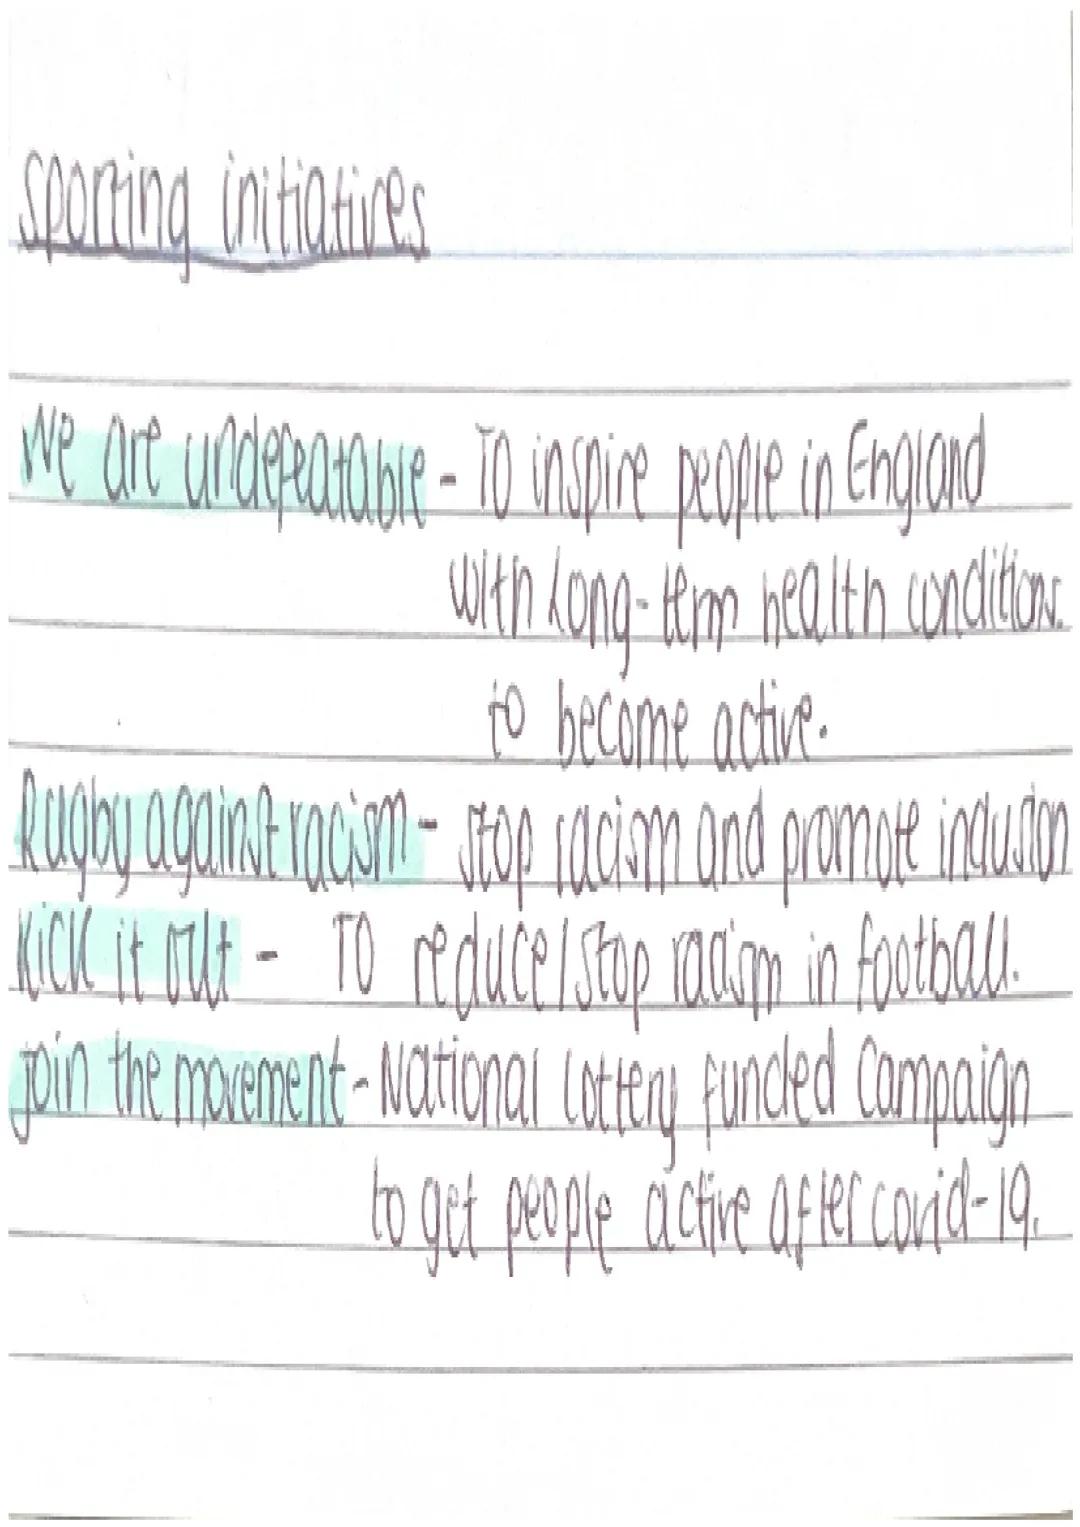 sporting initiatives
We are undefeatable - To inspire people in England
with Long-term health conditions.
to become active.
Rugby against racism - stop racism and promote inclusion
Kick it out - To reduce/stop racism in football.
join the movement - National Lottery funded Campaign
to get people active after covid-19.